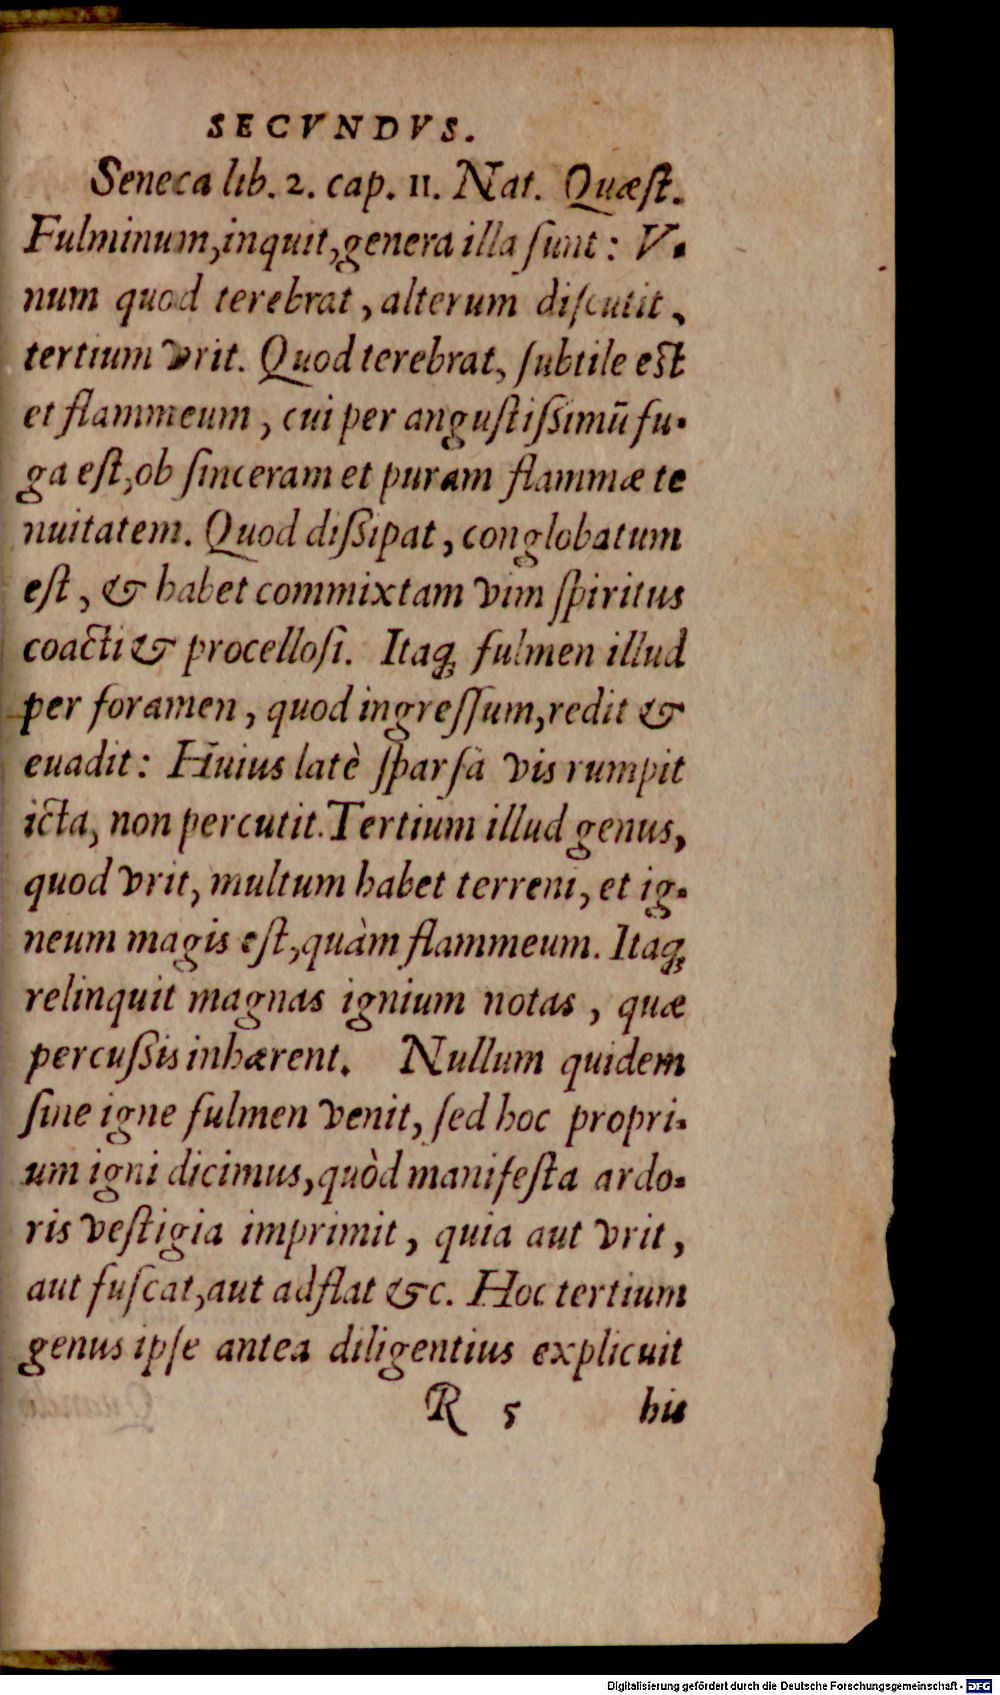 SECVNDVS.
Seneca lib. 2. cap. 11. Nat. Quæſt.
Fulminum, inquit, genera illa ſunt: V-
num quod terebrat, alterum diſcutit,
tertium vrit. Quod terebrat, ſubtile est
et flammeum, cui per anguſtiſſimū fu-
ga eſt, ob ſinceram et puram flammæ te
nuitatem. Quod diſſipat, conglobatum
eſt, & habet commixtam vim ſpiritus
coacti & procelloſi. Itaq; fulmen illud
per foramen, quod ingreſſum, redit &
euadit: Huius latè ſparſa vis rumpit
icta, non percutit. Tertium illud genus,
quod vrit, multum habet terreni, et ig-
neum magis eſt, quàm flammeum. Itaq;
relinquit magnas ignium notas, quæ
percuſſis inhærent. Nullum quidem
ſine igne fulmen venit, ſed hoc propri-
um igni dicimus, quòd manifeſta ardo-
ris veſtigia imprimit, quia aut vrit,
aut fuſcat, aut adflat &c. Hoc tertium
genus ipſe antea diligentius explicuit
R 5 his
Digitalisierung gefördert durch die Deutsche Forschungsgemeinschaft - DFG